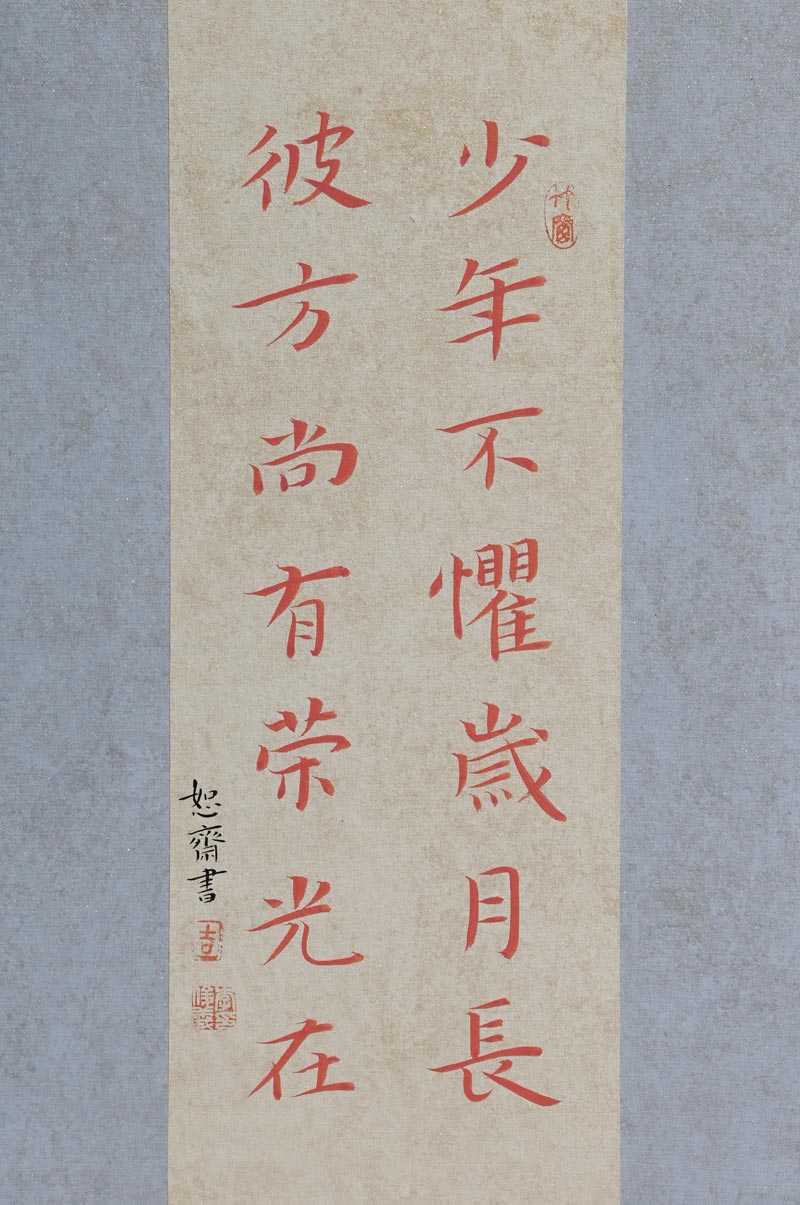 少年不懼歲月長
彼方尚有荣光在
恕齋書